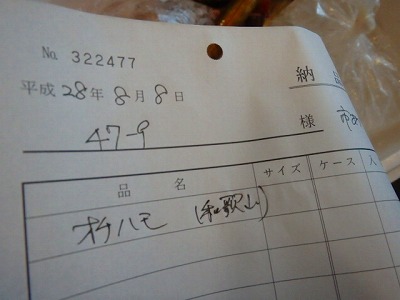 No. 322477
納
平成28年8月8日
47-9 様 市
品名 サイズ ケース 入
オチハモ (和歌山)